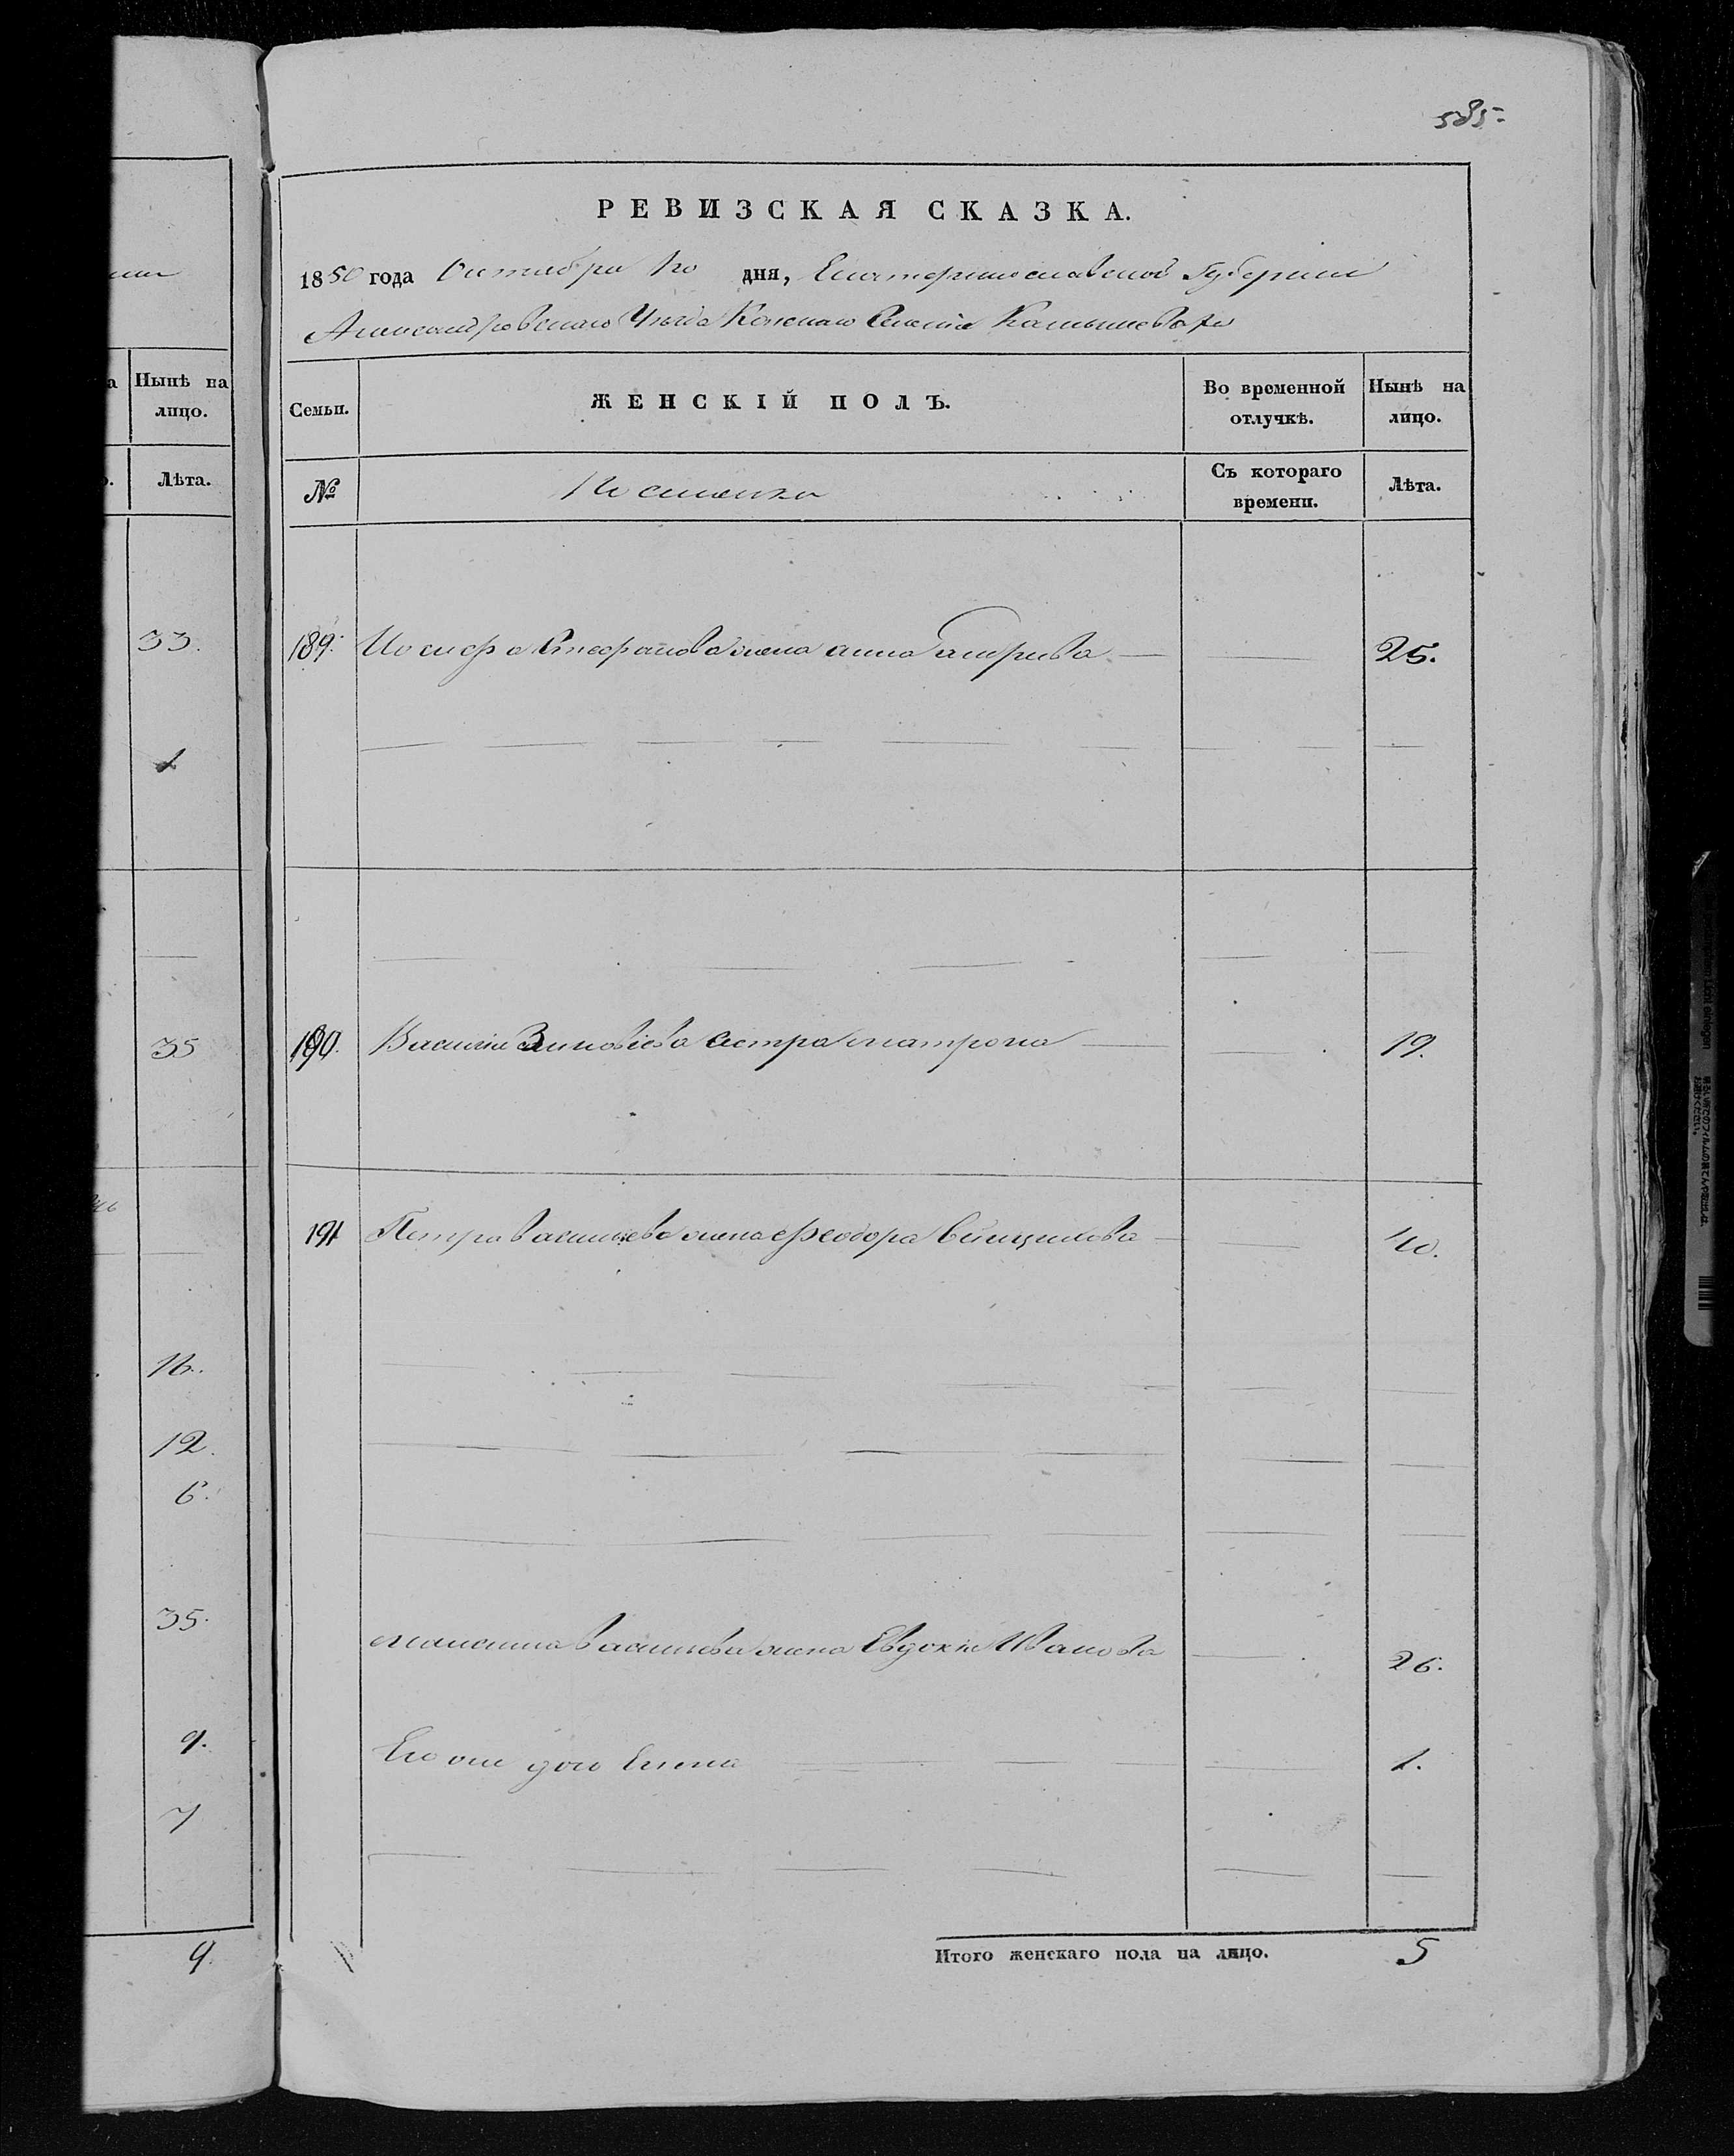 585.
РЕВИЗСКАЯ СКАЗКА.
1850 года Октября дня, Екатеринославской Губернии
Александровскаго Уѣзда Конскаго
Нынѣ на лицо.
Лѣта.
33.
1
35
16.
12.
6.
35.
9.
7
9.
Семьи.
ЖЕНСКІЙ ПОЛЪ.
Во временной отлучкѣ.
Нынѣ на лицо.
№
Съ котораго времени.
Лѣта.
189. Иосифа Стефанова жена анна 25.
190. Василія Зиновіева сестра матрона 19.
191 Петра васильева жена феодора 40.
василева жена Евдокія Иванова 26.
Его дочь Елена 1.
Итого женскаго пола на лицо. 5